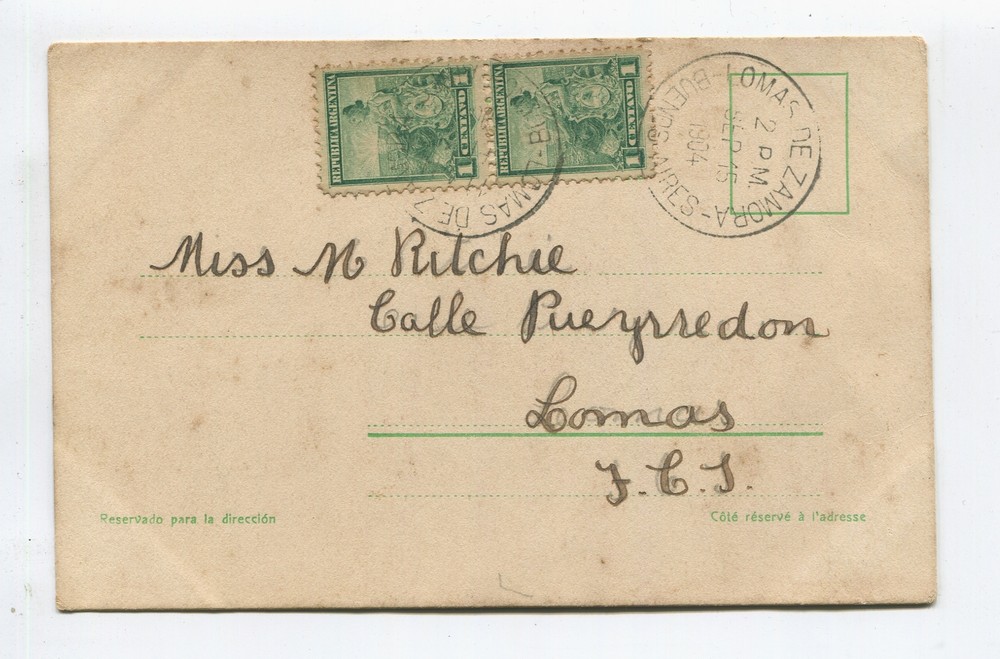 REPUBLICA ARGENTINA 1 CENTAVO 1
REPUBLICA ARGENTINA 1 CENTAVO 1
LOMAS DE ZAMORA - BUENOS AIRES -
2 P.M.
SEP 15
1904
LOMAS DE Z
Miss M Ritchie
Calle Pueyrredon
Lomas
F.C.S.
Reservado para la dirección
Côté réservé à l'adresse